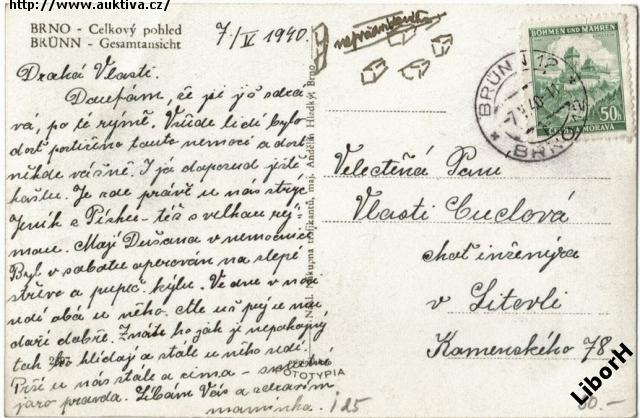 http://www.auktiva.cz/
BRNO - Celkový pohled
BRÜNN - Gesamtansicht
7/V 1940.
Drahá Vlasti.
Doufám, že jsi již zdra-
vá, po té rýmě. Všude lidí bylo
dost postiženo touto nemocí a dost
někde vážně. I já doposud ještě
kašlu. Je zde právě u nás strýc
Jeník z Písku - též s velkou rý-
mou. Mají Dušana v nemocnici
Byl v sobotu operován na slepé
střevo a pupeč. kýlu. Ve dne v noci
sedí oba u něho. Ale už prý se mu
daří dobře. Znáte ho jak je nepokojný
tak ho hlídají a stále u něho sedí.
Prší u nás stále a zima - smutné
jaro pravda. Líbám Vás a zdravím
maminka.
Nákl. Nákupna trafikantů, maj. Andělín Hladký, Brno
FOTOTYPIA
BÖHMEN UND MÄHREN
50h
ČECHY A MORAVA
BRÜNN 12
BRNO 12
Velectěná Paní
Vlasti Cuclová
choť inženýra
v Litovli
Kamenského 78
125
80.-
LiborH